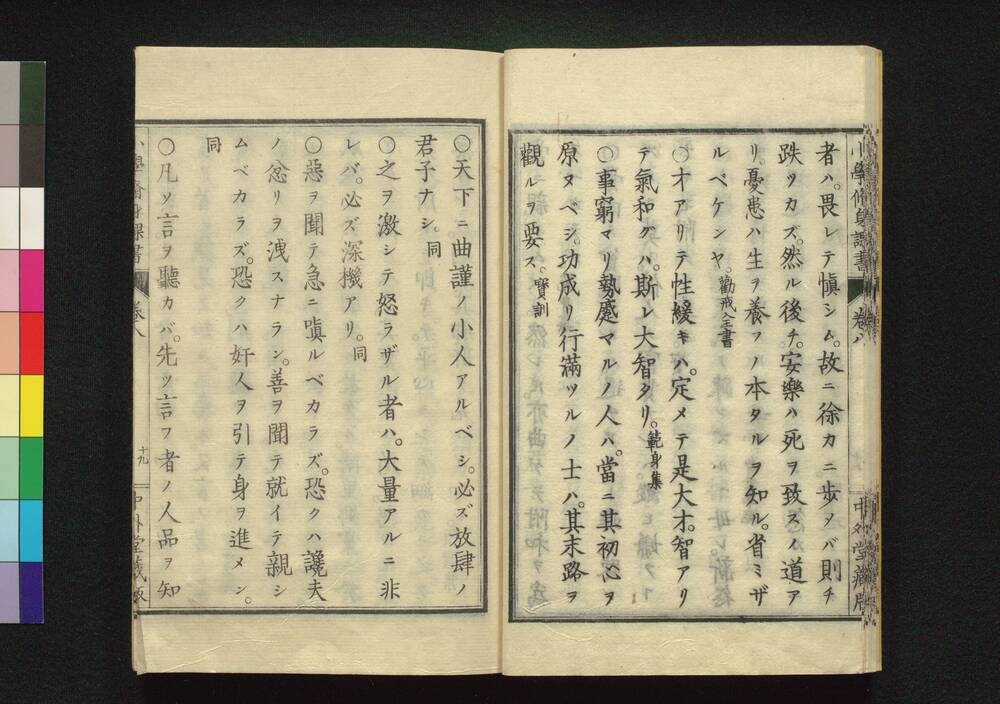 小學脩身課書 卷八 中外堂藏版
者ハ。畏レテ愼シム。故ニ徐カニ歩メバ則チ
跌ツカズ。然ル後チ。安樂ハ死ヲ致スノ道ア
リ。憂患ハ生ヲ養フノ本タルヲ知ル。省ミザ
ルベケンヤ。勸戒全書
〇才アリテ性緩キハ。定メテ是大才。智アリ
テ氣和グハ。斯レ大智タリ。範身集
〇事窮マリ勢蹙マルノ人ハ。當ニ其初心ヲ
原ヌベシ。功成リ行滿ツルノ士ハ。其末路ヲ
觀ルヲ要ス。寶訓
〇天下ニ曲謹ノ小人アルベシ。必ズ放肆ノ
君子ナシ。同
〇之ヲ激シテ怒ラザル者ハ。大量アルニ非
レバ。必ズ深機アリ。同
〇惡ヲ聞テ急ニ嗔ルベカラズ。恐クハ讒夫
ノ忿リヲ洩スナラン。善ヲ聞テ就イテ親シ
ムベカラズ。恐クハ奸人ヲ引テ身ヲ進メン。
同
〇凡ソ言ヲ聽カバ。先ツ言フ者ノ人品ヲ知
小學脩身課書 卷八 十九 中外堂藏版